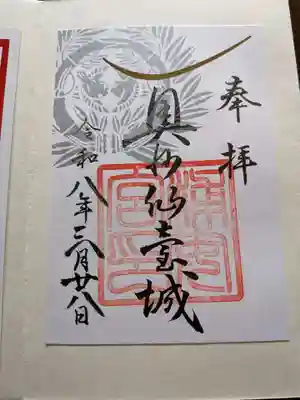 奉拝
奥州仙臺城
令和八年三月廿八日